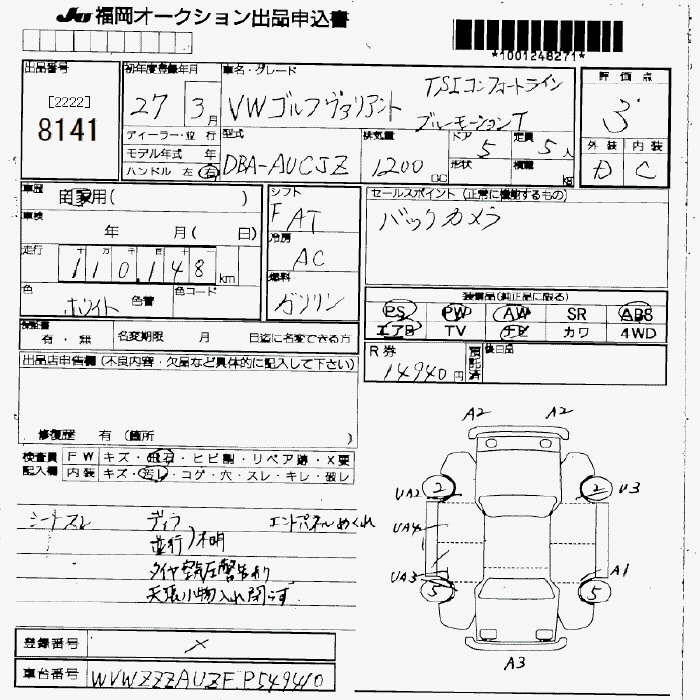 JU 福岡オークション出品申込書
*1001248271*
出品番号
[2222]
8141
初年度登録年月
27 3月
車名・グレード
VWゴルフヴァリアント
TSIコンフォートライン
ブルーモーションT
評価点
3
ディーラー・並行
モデル年式 年
ハンドル 左 右
型式
DBA-AUCJZ
排気量
1200 CC
ドア
5
形状
定員
5人
積載
kg
外装 内装
D C
車歴
自家用( )
車検
年 月( 日)
走行
十 万 千 百 十
110,148 km
色
ホワイト 色替
色コード
シフト
F AT
冷房
AC
燃料
ガソリン
セールスポイント(正常に機能するもの)
バックカメラ
装備品(純正品に限る)
PS PW AW SR ABS
エアB TV ナビ カワ 4WD
保証書
有・無
名変期限 月 日迄に名変できる方
R券
14940円
預託済
後日品
出品店申告欄(不良内容・欠品など具体的に記入して下さい)
修復歴 有(箇所 )
検査員記入欄
FW キズ・飛石・ヒビ割・リペア跡・X要
内装 キズ・汚レ・コゲ・穴・スレ・キレ・破レ
シートスレ
ディラ
並行)不明
エンドパネルめくれ
タイヤ空気圧警告有り
天張小物入れ閉らず
A2 A2
UA2 2 2 U3
UA4
UA3 5 5 A1
A3
登録番号
×
車台番号
WVWZZZAUZFP549410